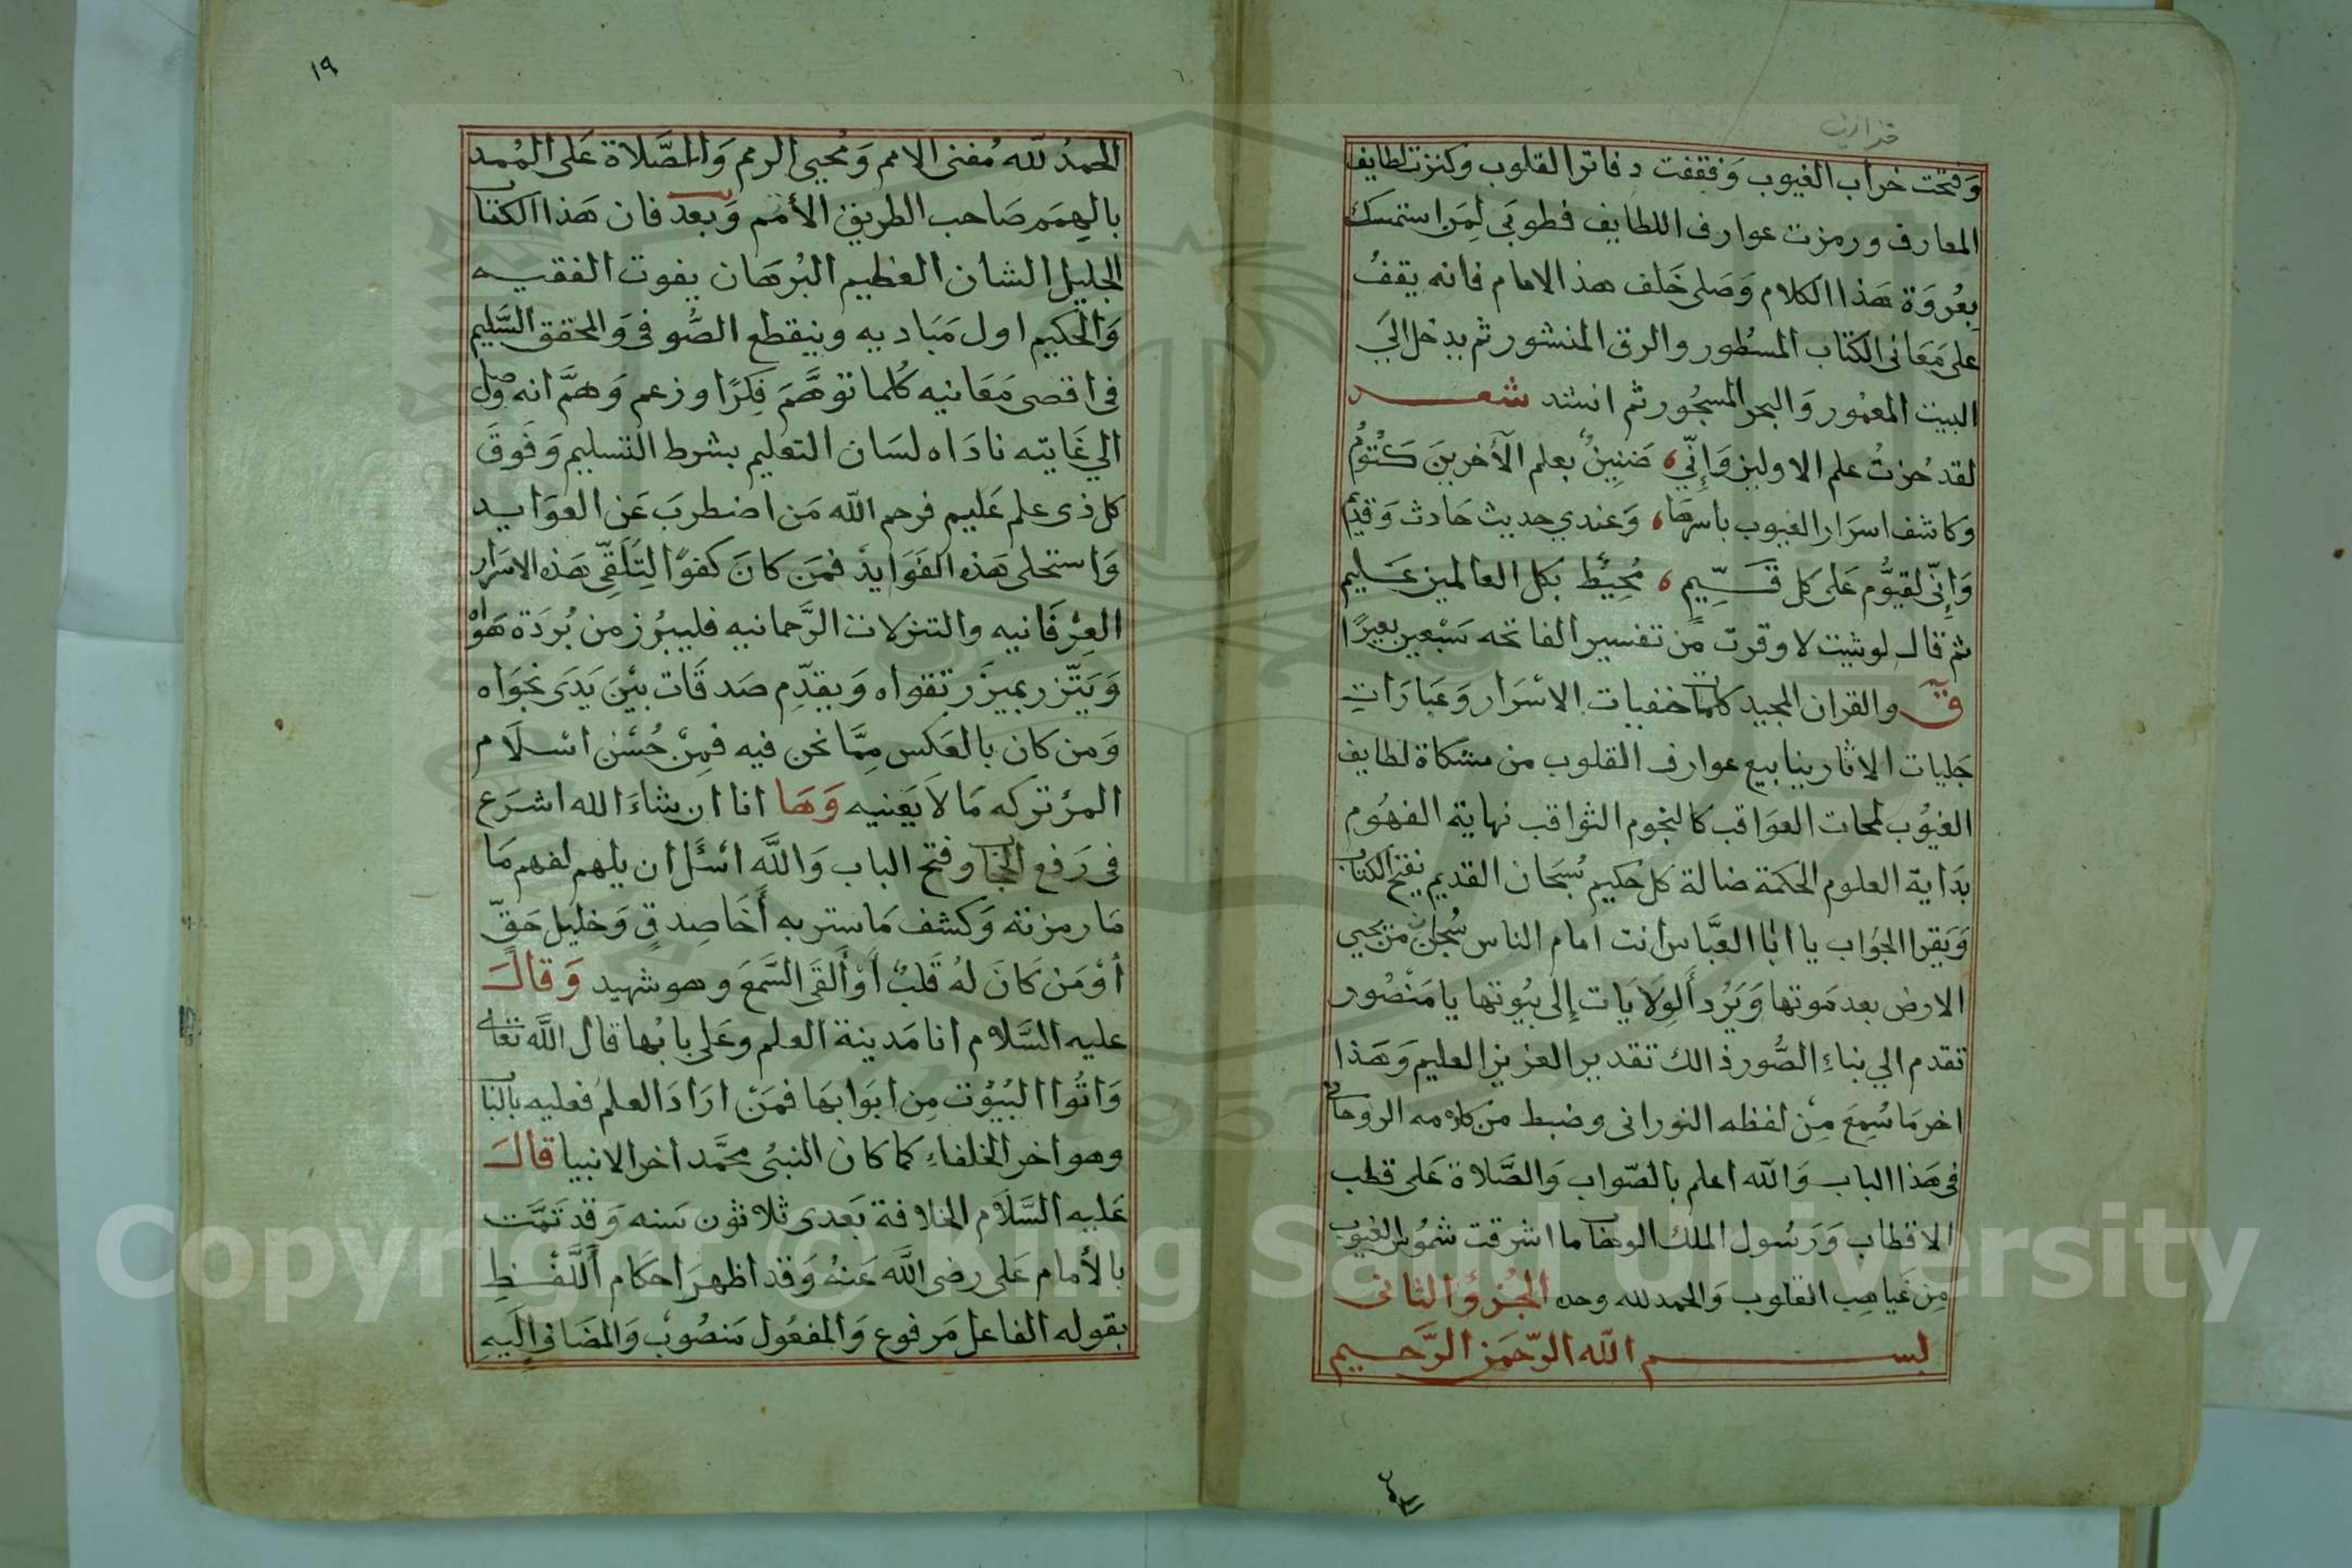 وَفتحت خراب الغيوب وَفققفت دفاتر القلوب وكنزت لطايف
المعارف ورمزت عوارف اللطايف فطوبَى لِمَن استمسك
بِعُروَة هَذا الكلام وَصَلى خَلف هذا الامام فانه يقفُ
على مَعَانى الكتاب المسْطور والرق المنشور ثم يدخل الىَ
البيت المعمُور وَالبحر المسجُور ثم انشد شعــر
لقد حُزتُ علم الاولين وَاِنّي ، ضَنِينٌ بعلم الآخرينَ كَتُومُ
وكاشف اسرَار الغيوب باسرهَا ، وَعندي حديث حَادث وَقديمُ
وَاِنّى لقيُّوم عَلى كل قَــيِّمٍ ، مُحِيْط بكل العالمين عَــليم
ثم قال لو شيت لاوقرت من تفسير الفاتحه سَبْعين بعيرًا
قۤ والقران المجيد كلمات خفيات الاسْرَار وَعبَارَاتِ
جَليات الاثار ينابيع عوارف القلوب من مشكاة لطايف
الغيُوب لمحات العوَاقب كالنجوم الثواقب نهاية الفهُوم
بدَاية العلوم الحكمة ضالة كل حكيم سُبحَان القديم يفتح الكتاب
وَيقرا الجوَاب يا ابا العبَّاس انت امام الناس سُبحان من يحيي
الارض بعد مَوتها وَيَرُد اَلوِلَايَات إلى بيُوتها يا مَنْصُور
تقدم الي بناءِ الصُّور ذالك تقدير العزيز العليم وَهَذا
اخر مَا سُمِعَ مِنْ لفظه النورانى وضبط من كلامه الروحانى
فى هَذا الباب وَالله اعلم بالصّواب وَالصَّلاة عَلى قطب
الاقطاب وَرَسُول الملك الوهاب ما اشرقت شمُوس الغيوب
مِن غَياهِب القلوب وَالحمد لله وحده الجُزؤ الثانى
بســــم الله الرّحمَن الرَّحــيم
١٩
الحمدُ للّه مُفنى الامم وَمُحيي الرمم وَالصَّلاة عَلى المُمد
بالهِمَم صَاحب الطريق الأمَم وَبعد فان هَذا الكتاب
الجليل الشان العظيم البُرهَان يفوت الفقيــه
وَالحكيم اول مَبَاديه وينقطع الصُّوفى وَالمحقق السَّليم
فى اقصى مَعَانيه كُلما توهَّمَ فِكرًا وزعم وَهمَّ انه وصل
الي غَايته نادَاه لسَان التعليم بشرط التسليم وَفَوقَ
كل ذى علم عَليم فرحم الله مَن اضطربَ عَن العوَايــد
وَاستحلى هَذه الفَوَايد فمَن كانَ كفوًا لِتَلَقّى هَذه الاسرَار
العِرْفَانيه والتنزلات الرَّحمانيه فليبرُز من بُردَة هَوَاهْ
وَيَتّزر بميزَر تقواه وَيقدِّم صَدقَات بيْنَ يَدَى نجوَاه
وَمن كان بالعَكس مِمَّا نحن فيه فمِنْ حُسْن اسْــلَام
المرْء تركه مَا لَا يَعنيه وَهَا انا ان شاءَ الله اشرَع
فى رَفع الحجاب وفتح الباب وَاللَّه اسْئَل ان يلهم لفهم مَا
مَا رمزته وَكشف مَا ستر به أَخَا صِدقٍ وَخليل حَقٍّ
أوْ مَن كَانَ لهُ قَلبٌ اَوْ اَلقَى السَّمعَ وهو شهيد وَقالَــ
عليه السَّلام انا مَدينة العلم وعَلى بابُها قال اللَّه تعالى
وَاتُوا البُيُوْت مِن ابَوابهَا فمَنْ ارَادَ العلمَ فعليه بالباب
وهو اخر الخلفاءِ كما كان النبىُ محَمَّد اخر الانبيا قالَــ
عَليه السَّلَام الخلافة بَعدى ثلاثون سَنه وَقد تَمَّت
بالأمام عَلى رضى اللَّه عَنهُ وَقد اظهرَ احكام اللَّفْــظِ
بقوله الفاعل مَرفوع وَالمفعُول مَنصُوبٌ وَالمضَاف اِلَيهِ